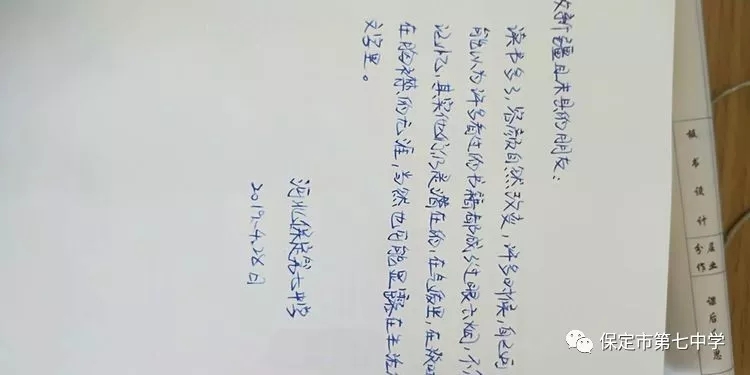 新疆且末县的朋友：
读书多了，容颜自然改变，许多时候，自己可
能以为许多看过的书籍都成了过眼云烟，不
记忆，其实他们仍是潜在的，在气质里，在谈
在胸襟的无涯，当然也可能显露在生活
文字里。
河北保定第七中学
2019.4.28日
板书设计
分层
作业
课后 思
保定市第七中学